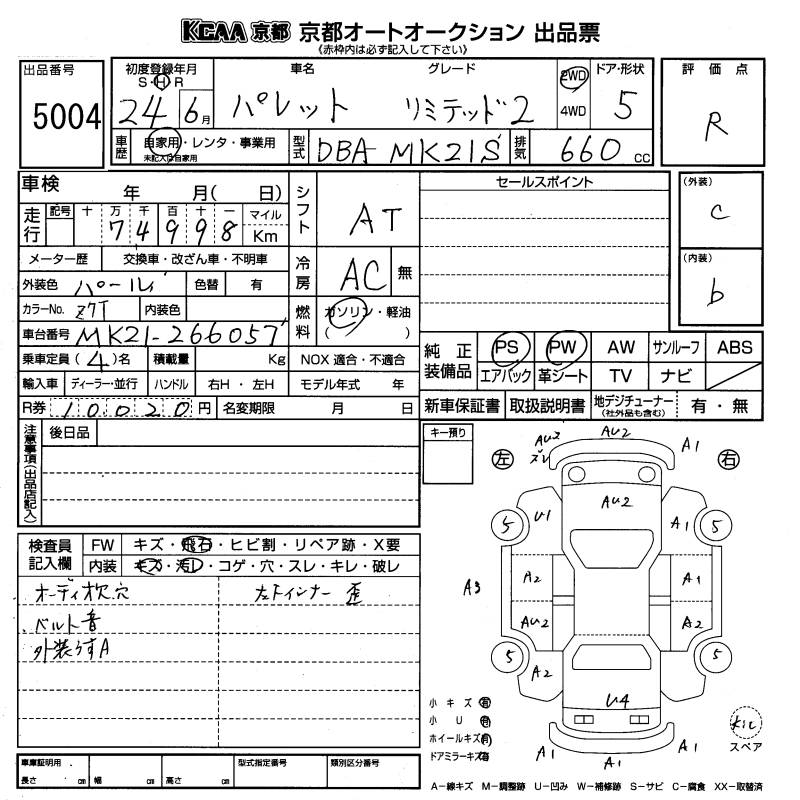 KCAA 京都 京都オートオークション 出品票
《赤枠内は必ず記入して下さい》
出品番号
5004
初度登録年月
S・H・R
24 6月
車名
パレット
グレード
リミテッド2
2WD
4WD
ドア・形状
5
評価点
R
車歴
自家用・レンタ・事業用
未記入は自家用
型式
DBA-MK21S
排気
660 cc
車検 年 月( 日)
走行
記号 十 万 千 百 十 一
7 4 9 9 8
マイル
Km
シフト
AT
メーター歴 交換車・改ざん車・不明車
外装色 パール 色替 有
冷房
AC 無
カラーNo. Z7T 内装色
燃料
ガソリン・軽油
( )
車台番号 MK21-266057
乗車定員 (4)名 積載量 Kg NOX 適合・不適合
輸入車 ディーラー・並行 ハンドル 右H・左H モデル年式 年
R券 10020円 名変期限 月 日
セールスポイント
(外装)
C
(内装)
b
純正装備品
PS PW AW サンルーフ ABS
エアバック 革シート TV ナビ
新車保証書 取扱説明書 地デジチューナー
(社外品も含む)
有・無
注意事項(出品店記入)
後日品
キー預り
検査員記入欄
FW キズ・飛石・ヒビ割・リペア跡・X要
内装 キズ・汚レ・コゲ・穴・スレ・キレ・破レ
オーディオ欠.穴
ベルト音
外装うすA
左Fインナー 歪
左 右
AU2
ズレ
AU2
A1
AU2
U1
A1
5
5
A3
A2
A1
AU2
A2
5
5
A2
U4
A1
A1
A1
小キズ 有
小U 有
ホイールキズ 有
ドアミラーキズ 有
スペア
A−線キズ M−調整跡 U−凹み W−補修跡 S−サビ C−腐食 XX−取替済
車庫証明用
長さ cm 幅 cm 高さ cm
型式指定番号
類別区分番号